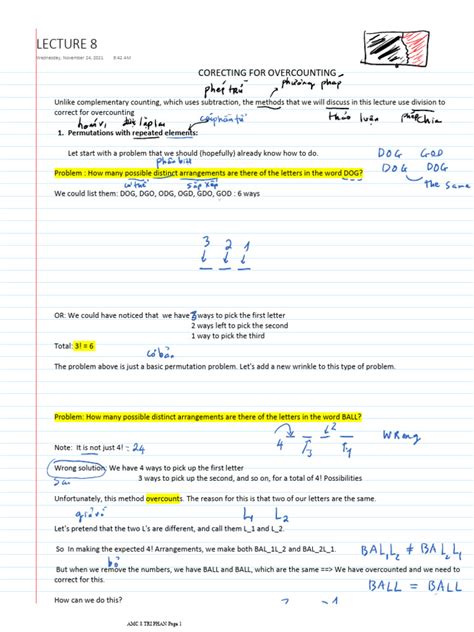 LECTURE 8
Wednesday, November 24, 2021 8:42 AM
CORECTING FOR OVERCOUNTING
phép trừ phương pháp
Unlike complementary counting, which uses subtraction, the methods that we will discuss in this lecture use division to
correct for overcounting
hoán vị lặp lại thảo luận phép chia
1. Permutations with repeated elements:
Let start with a problem that we should (hopefully) already know how to do.
phân biệt
DOG GOD
Problem : How many possible distinct arrangements are there of the letters in the word DOG?
DOG DOG
có thể sắp xếp
the same
We could list them: DOG, DGO, ODG, OGD, GDO, GOD : 6 ways
3 2 1
OR: We could have noticed that we have 3 ways to pick the first letter
2 ways left to pick the second
1 way to pick the third
Total: 3! = 6
cơ bản
The problem above is just a basic permutation problem. Let's add a new wrinkle to this type of problem.
Problem: How many possible distinct arrangements are there of the letters in the word BALL?
4 3 2 1
WRong
Note: It is not just 4! = 24
Wrong solution: We have 4 ways to pick up the first letter
Sai
3 ways to pick up the second, and so on, for a total of 4! Possibilities
Unfortunately, this method overcounts. The reason for this is that two of our letters are the same.
giả vờ L1 L2
Let's pretend that the two L's are different, and call them L_1 and L_2.
So In making the expected 4! Arrangements, we make both BAL_1L_2 and BAL_2L_1.
BAL1L2 ≠ BAL2L1
But when we remove the numbers, we have BALL and BALL, which are the same ==> We have overcounted and we need to
correct for this.
BALL = BALL
How can we do this?
AMC 8 TRI PHAN Page 1